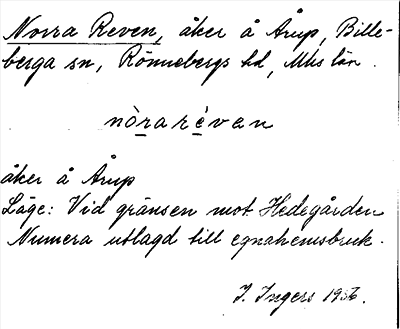 Norra Reven, åker å Årup, Bille-
berga sn, Rönnebergs hd, Mhs län.
nòrarèvan
åker å Årup
Läge: Vid gränsen mot Hedegården
Numera utlagd till egnahemsbruk.
I. Ingers 1936.